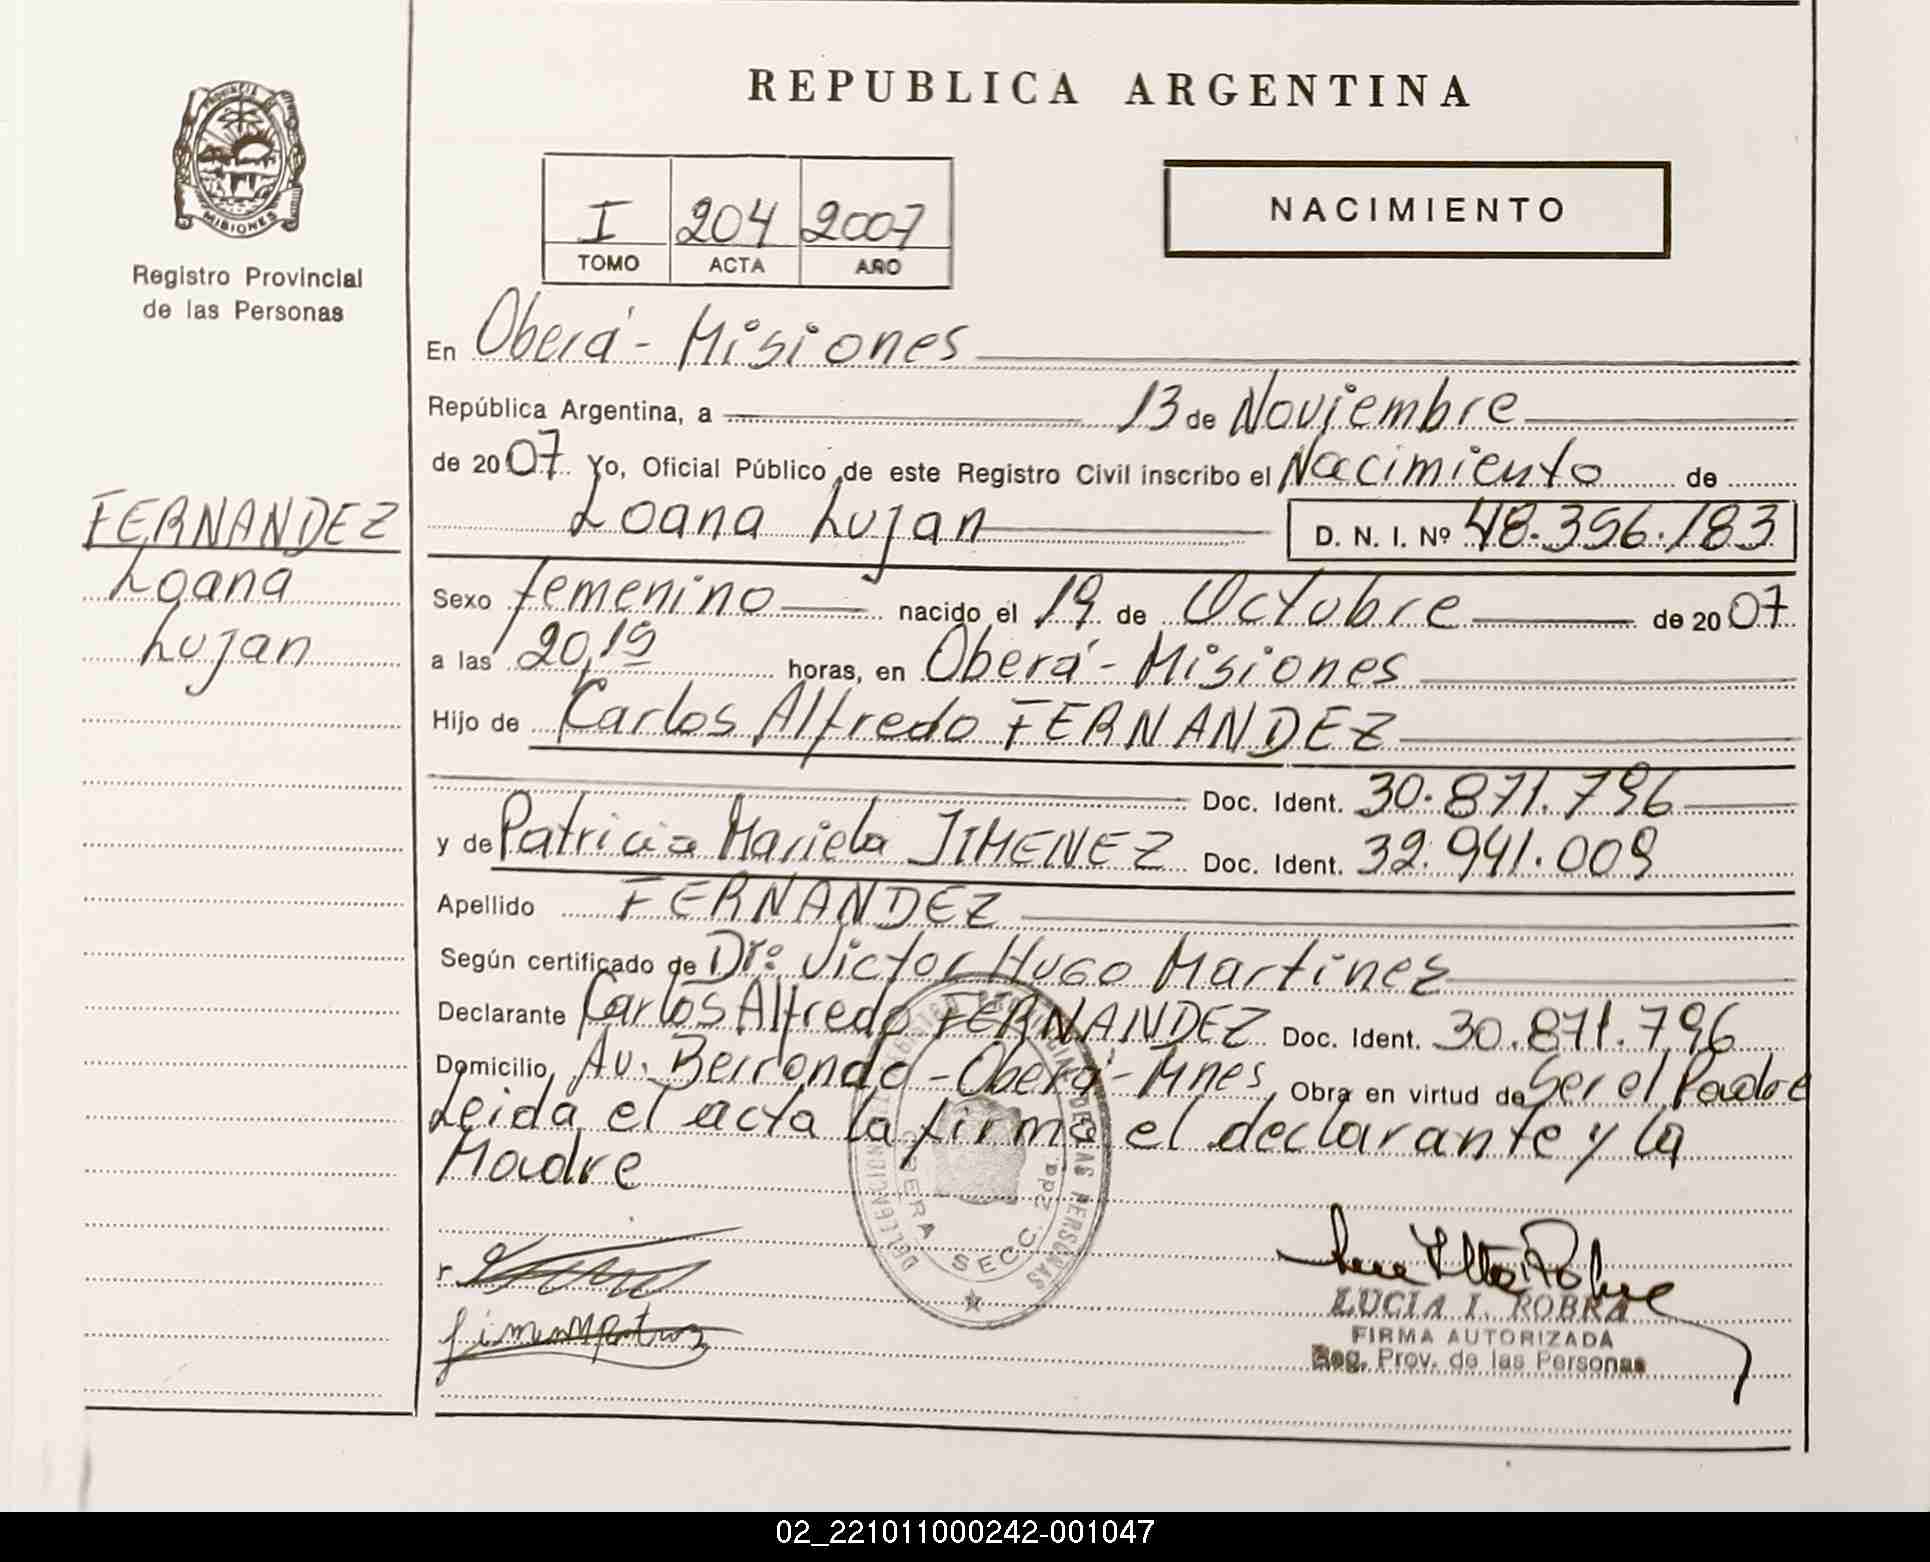 REPUBLICA ARGENTINA
PROVINCIA DE
MISIONES
Registro Provincial
de las Personas
I 204 2007
TOMO ACTA AÑO
NACIMIENTO
En Oberá - Misiones
República Argentina, a 13 de Noviembre
de 2007. Yo, Oficial Público de este Registro Civil inscribo el Nacimiento de
Loana Lujan D. N. I. Nº 48.356.183
FERNANDEZ
Loana
Lujan
Sexo femenino nacido el 19 de Octubre de 2007
a las 20,15 horas, en Oberá - Misiones
Hijo de Carlos Alfredo FERNANDEZ
Doc. Ident. 30.871.796
y de Patricia Mariela JIMENEZ Doc. Ident. 32.941.009
Apellido FERNANDEZ
Según certificado de Dr: Victor Hugo Martinez
Declarante Carlos Alfredo FERNANDEZ Doc. Ident. 30.871.796
Domicilio Av. Berrondo - Oberá - Mnes Obra en virtud de Ser el Padre
Leida el acta la firma el declarante y la
Madre
DELEGACION REGISTRO PROVINCIAL DE LAS PERSONAS
OBERA SECC. 2da.
LUCIA I. ROBRA
FIRMA AUTORIZADA
Reg. Prov. de las Personas
02_221011000242-001047